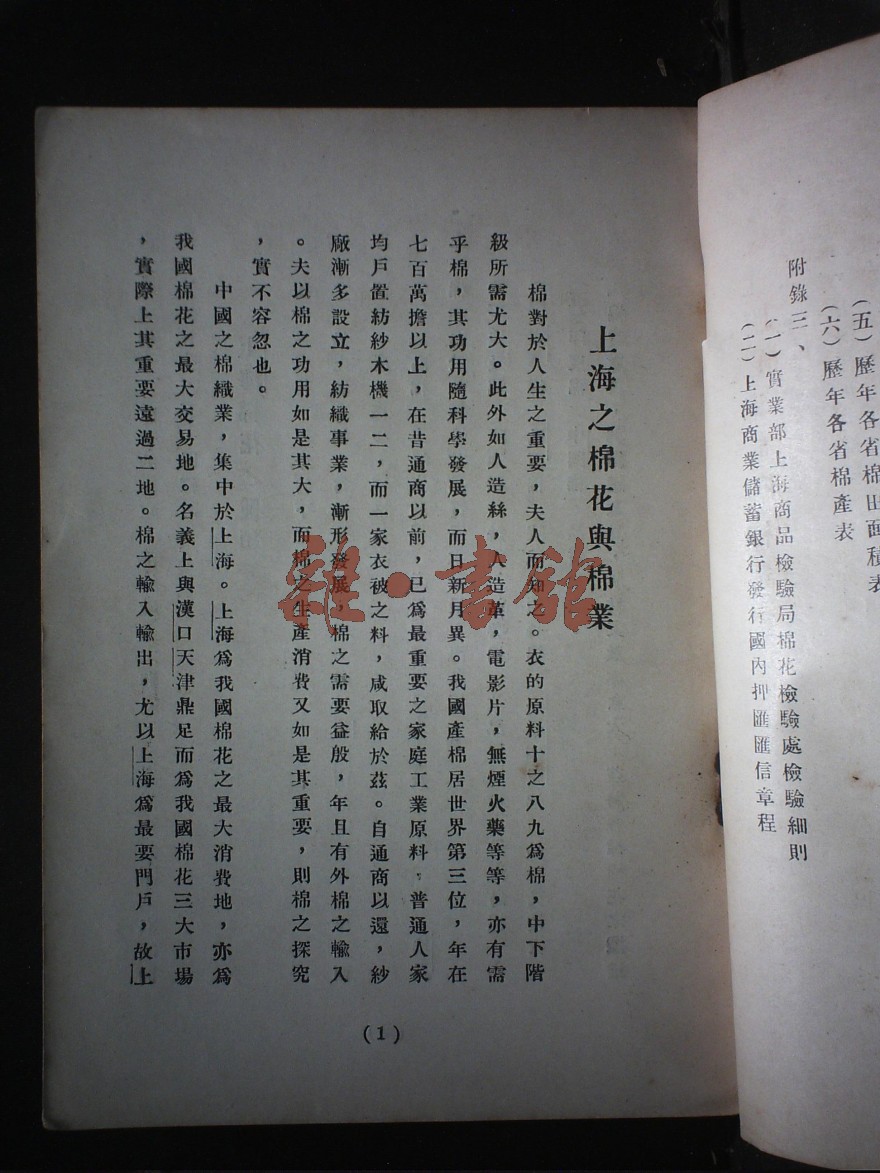 (五)歷年各省棉田面積表
(六)歷年各省棉產表
附錄三、
(一)實業部上海商品檢驗局棉花檢驗處檢驗細則
(二)上海商業儲蓄銀行發行國內押匯匯信章程
上海之棉花與棉業
棉對於人生之重要,夫人而知之。衣的原料十之八九爲棉,中下階
級所需尤大。此外如人造絲,人造革,電影片,無煙火藥等等,亦有需
乎棉,其功用隨科學發展,而日新月異。我國產棉居世界第三位,年在
七百萬擔以上,在昔通商以前,已爲最重要之家庭工業原料,普通人家
均戶置紡紗木機一二,而一家衣被之料,咸取給於茲。自通商以還,紗
廠漸多設立,紡織事業,漸形發展,棉之需要益殷,年且有外棉之輸入
。夫以棉之功用如是其大,而棉之生產消費又如是其重要,則棉之探究
,實不容忽也。
中國之棉織業,集中於上海。上海爲我國棉花之最大消費地,亦爲
我國棉花之最大交易地。名義上與漢口天津鼎足而爲我國棉花三大市場
,實際上其重要遠過二地。棉之輸入輸出,尤以上海爲最要門戶,故上
(1)
雜·書館